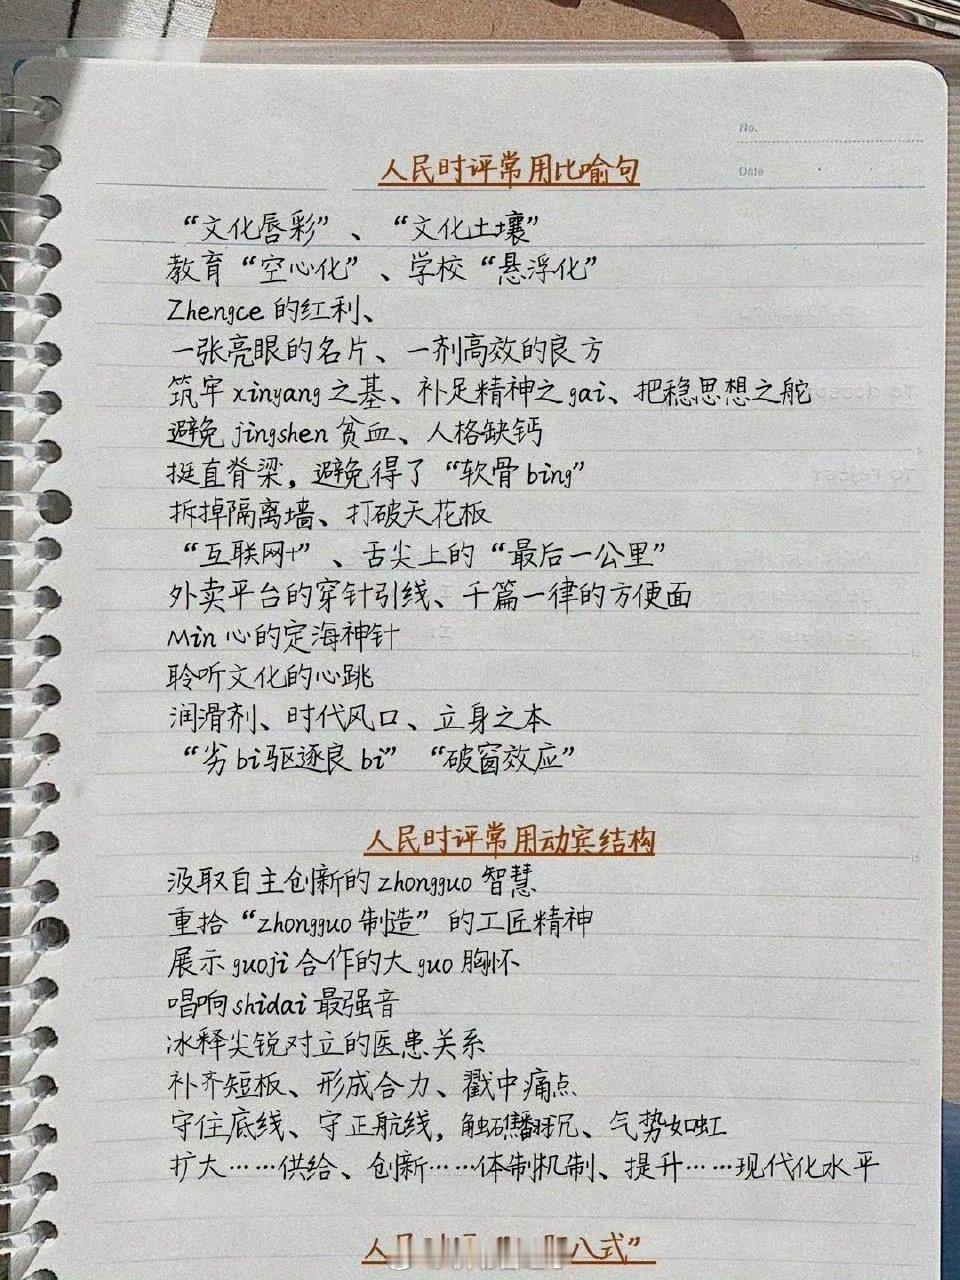 No.
Date
人民时评常用比喻句
“文化唇彩”、“文化土壤”
教育“空心化”、学校“悬浮化”
Zhengce 的红利、
一张亮眼的名片、一剂高效的良方
筑牢 xinyang 之基、补足精神之 gai、把稳思想之舵
避免 jingshen 贫血、人格缺钙
挺直脊梁，避免得了“软骨 bing”
拆掉隔离墙、打破天花板
“互联网+”、舌尖上的“最后一公里”
外卖平台的穿针引线、千篇一律的方便面
Min 心的定海神针
聆听文化的心跳
润滑剂、时代风口、立身之本
“劣 bi 驱逐良 bi” “破窗效应”
人民时评常用动宾结构
汲取自主创新的 zhongguo 智慧
重拾“zhongguo 制造”的工匠精神
展示 guoji 合作的大 guo 胸怀
唱响 shidai 最强音
冰释尖锐对立的医患关系
补齐短板、形成合力、戳中痛点
守住底线、守正航线，触礁翻沉、气势如虹
扩大……供给、创新……体制机制、提升……现代化水平
八式”